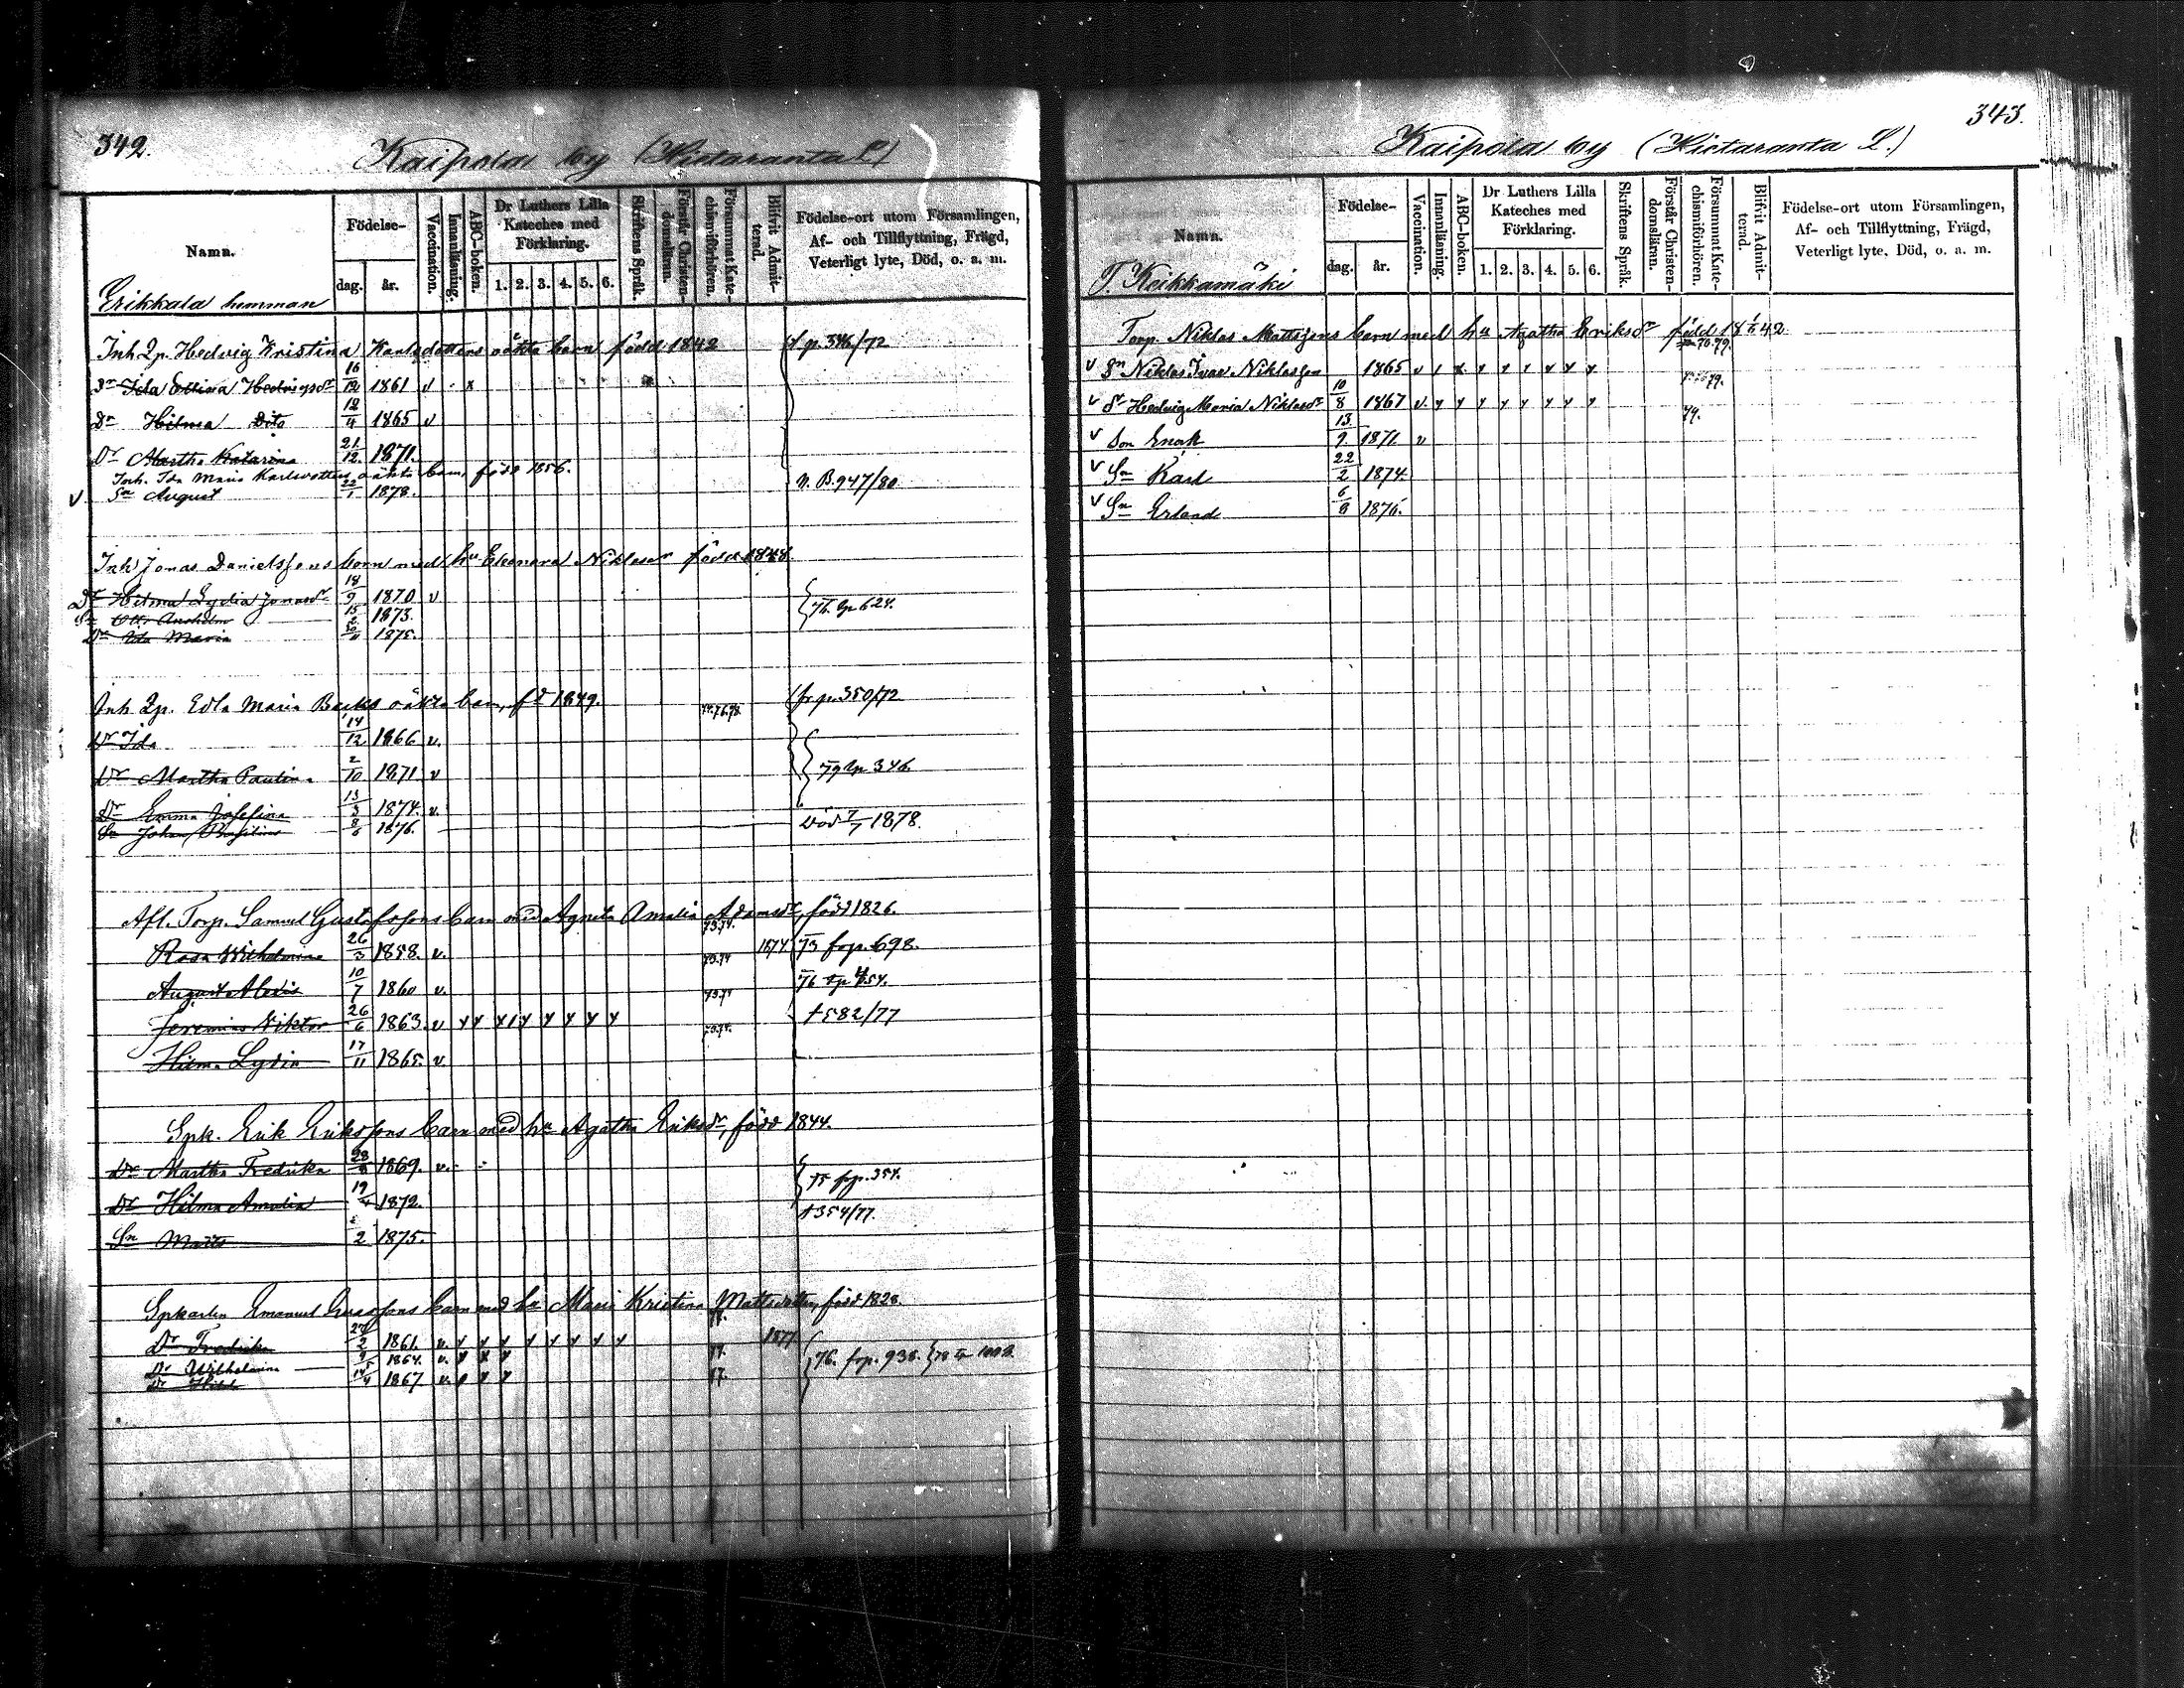 342.
Kaipola by (Hietaranta L.)
Namn.
Födelse-
dag. år.
Vaccination.
Innanläsning.
ABC-boken.
Dr Luthers Lilla Kateches med Förklaring.
1. 2. 3. 4. 5. 6.
Skriftens Språk.
Förstår Christendomsläran.
Försummat Katechismiförhören.
Blifvit Admitterad.
Födelse-ort utom Församlingen, Af- och Tillflyttning, Frägd, Veterligt lyte, Död, o. a. m.
Erikkala hemman
Inh Qp. Hedvig Kristina Karlsdotters oäkta barn född 1842 f.p. 346/72
Dr Ida Hedvigsdr 16/12 1861 v x
Dr Hilma Dito 12/4 1865 v
Dr Martha Katarina 21/12 1871.
Inh. Ida Maria Karlsdotters oäkta barn, född 1856.
v Sn August 22/1 1878. n. B. 947/80
Inh Jonas Danielssons barn med hu Eleonora Niklasdr född 1848
Dr Hilma Lydia Jonasdr 18/9 1870 v 76. 624.
Sn Otto 15/2 1873.
Dr Ida Maria 1875.
Inh Qp. Edla Maria Backs oäkta barn, fd 1849. fr p. 350/72
Dr Ida 14/12 1866 v.
Dr Martha Paulina 2/10 1871 v 79 346
Dr Emma Josefina 13/3 1874. v.
Sn Johan 8/6 1876. Död 7/7 1878.
Afl. Torp. Samuel Gustafssons barn med Agneta Amalia Adamsdr, född 1826.
73.74.
Rosa Wilhelmina 26/3 1858. v. 73.74 1874 73 frp. 698.
August Alexis 10/7 1860 v. 73.74 76 454.
Jeremias Viktor 26/6 1863. v 73.74. + 582/77
Hilma Lydia 17/11 1865. v.
Spk. Erik Erikssons barn med hu Agatha Eriksdr, född 1844.
Dr Martha Fredrika 23/8 1869. v. 75 frp. 354.
Dr Hilma Amalia 19/4 1872. + 354/77.
Sn Matts 2 1875.
Spkarlen Emanuel barn med hu Maria Kristina Mattsdotter, född 1828.
Dr Fredrika 27/2 1861. v 1877
Dr Wilhelmina 1864. v. 76. frp. 938.
Dr Hilda 1867 v.
343.
Kaipola by (Hietaranta L.)
Namn.
Födelse-
dag. år.
Vaccination.
Innanläsning.
ABC-boken.
Dr Luthers Lilla Kateches med Förklaring.
1. 2. 3. 4. 5. 6.
Skriftens Språk.
Förstår Christendomsläran.
Försummat Katechismiförhören.
Blifvit Admitterad.
Födelse-ort utom Församlingen, Af- och Tillflyttning, Frägd, Veterligt lyte, Död, o. a. m.
T. Keikkamäki
Torp. Niklas Mattssons barn med hu Agatha Eriksdr född 1842
v Sn Niklas Ivar Niklasson 1865 v
v Dr Hedvig Maria Niklasdr 10/8 1867 v. 79.
v Son Enok 13/9 1871 v
v Sn Karl 22/2 1874.
v Sn Erland 1876.